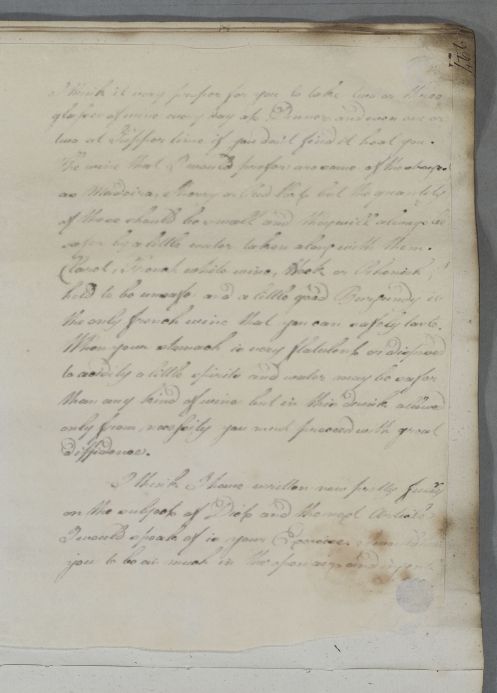 I think it very proper for you to take two or three
glasses of wine every day at Dinner and even one or
two at Supper time if you don't find it heat you.
The wine that I would prefer are some of the
as Madeira, Sherry or but the quantity
of these should be small and they will always be
safer by a little water taken along with them.
Claret, French white wine, Hock or Rhenish, I
hold to be unsafe and a little good Burgundy is
the only french wine that you can safely taste.
When your stomach is very flatulent or disposed
to acidity a little spirits and water may be safer
than any kind of wine but in this drink allowed
only from necessity you must proceed with great
diffidence.
I think I have written now pretty fully
on the subject of Diet and the next Article
I would speak of is your Exercise.
you to be as much in the open air and